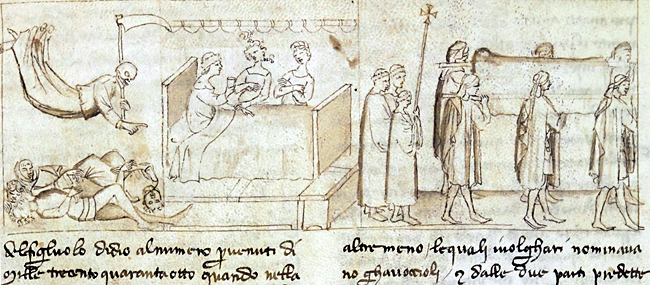 delfigluolo didio alnumero pervenuti di
Mille trecento quaranta otto quando nella
altre meno / lequali ivolghari nominava
no ghavoccioli / ⁊ dalle due parti predette